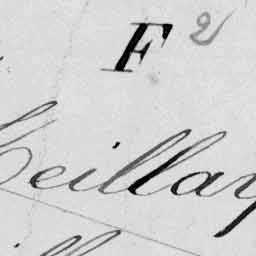 F 2
Meillay